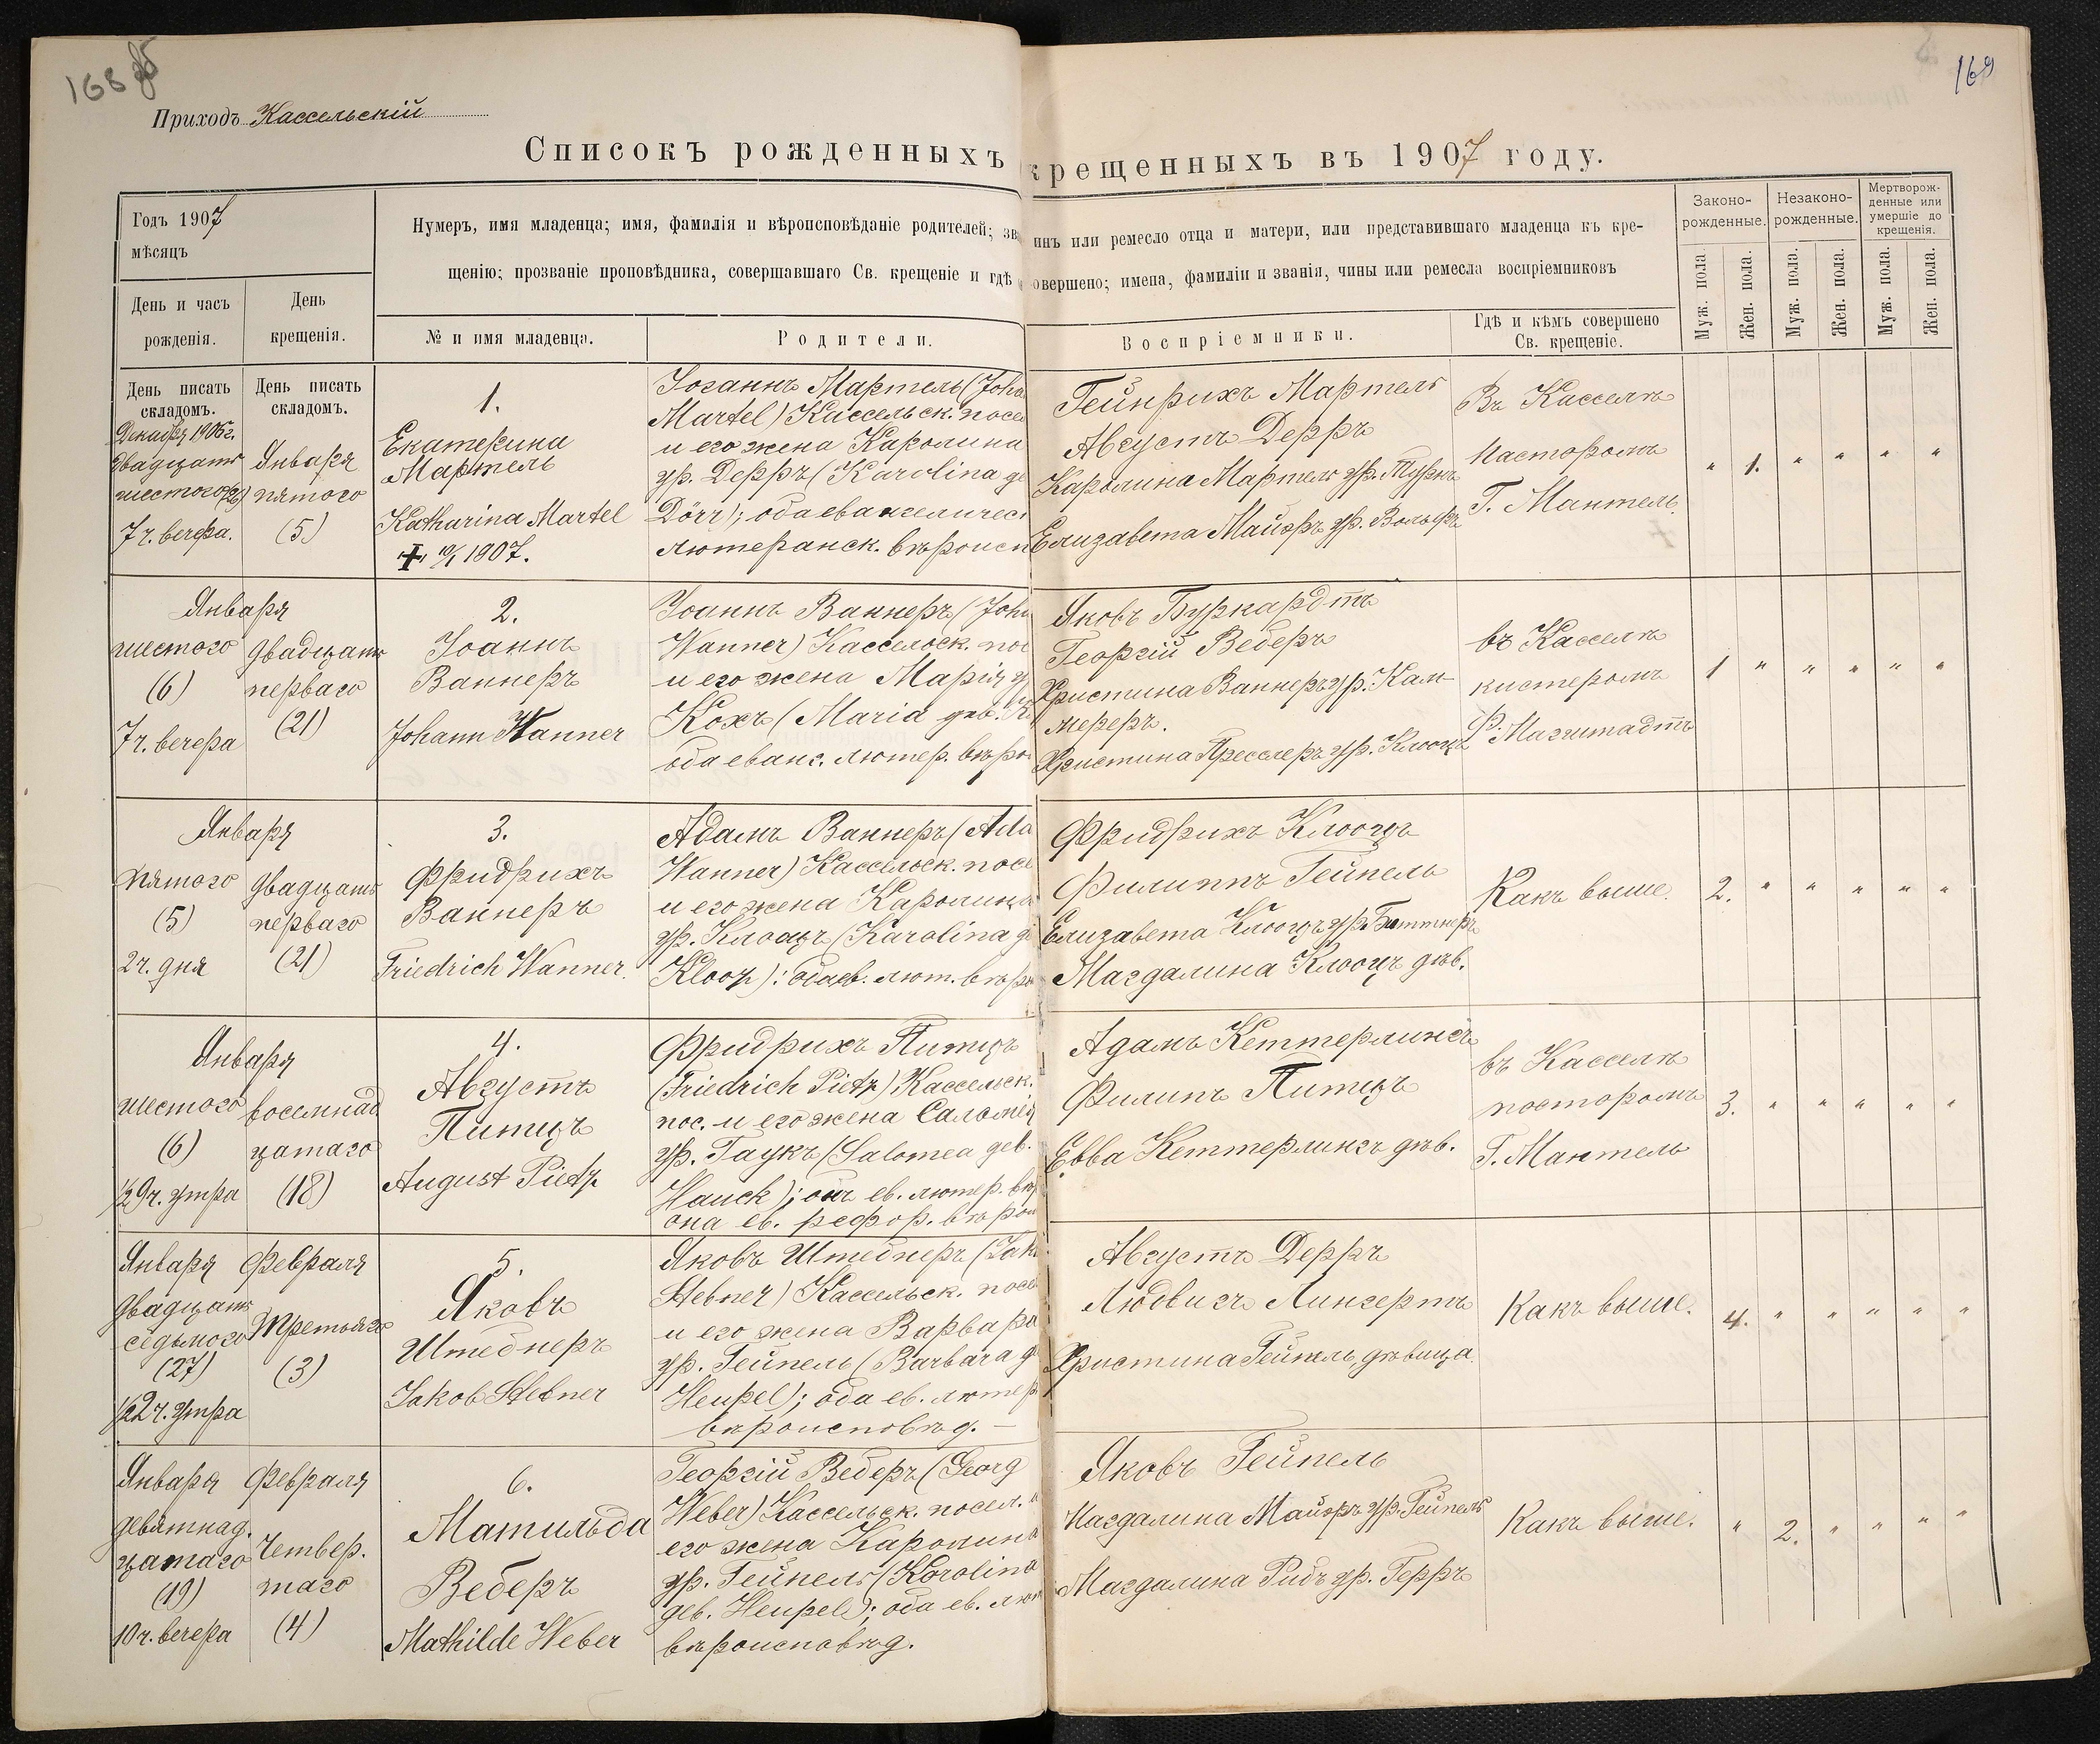 168 об
169
Приходъ Кассельскій
Списокъ рожденныхъ
крещенныхъ въ 1907 году.
Годъ 1907
мѣсяцъ
День и часъ
рожденія.
День
крещенія.
Нумеръ, имя младенца; имя, фамилія и вѣроисповѣданіе родителей; зв
щенію; прозваніе проповѣдника, совершавшаго Св. крещеніе и гдѣ
№ и имя младенца.
Родители.
инъ или ремесло отца и матери, или представившаго младенца къ кре-
овершено; имена, фамиліи и званія, чины или ремесла воспріемниковъ
Воспріемники.
Гдѣ и кѣмъ совершено
Св. крещеніе.
Законо-
рожденные.
Незаконо-
рожденные.
Мертворож-
денные или
умершіе до
крещенія.
Муж. пола.
Жен. пола.
Муж. пола.
Жен. пола.
Муж. пола.
Жен. пола.
День писать
складомъ.
День писать
складомъ.
Декабря 1906 г.
двадцать
шестого (26)
7 ч. вечера.
Января
пятого
(5)
1.
Екатерина
Мартель
Katharina Martel
+ 10/I 1907.
Іоганнъ Мартель (Joha
Martel) Кассельск. посел
и его жена Каролина
ур. Дерръ (Karolina де
Dörr); оба евангеличес
лютеранск. вѣроисп
Гейнрихъ Мартель
Августъ Дерръ
Каролина Мартель ур. Туркъ
Елизавета Майеръ ур. Вольфъ
Въ Касселѣ
пасторомъ
Г. Мантель.
" 1. " " " "
Января
шестого
(6)
7 ч. вечера
двадцать
перваго
(21)
2.
Іоаннъ
Ваннеръ
Johann Wanner
Іоаннъ Ваннеръ (Joha
Wanner) Кассельск. пос
и его жена Марія у
Кохъ (Maria дев. Ko
оба еванг. лютер. вѣро
Яковъ Буркардтъ
Георгій Веберъ
Христина Ваннеръ ур. Кам-
мереръ.
Христина Пресслеръ ур. Клооцъ
въ Касселѣ
кистеромъ
Ф. Магштадтъ
1 " " " " "
Января
пятого
(5)
2 ч. дня
двадцать
перваго
(21)
3.
Фридрихъ
Ваннеръ
Friedrich Wanner.
Адамъ Ваннеръ (Ada
Wanner) Кассельск. посе
и его жена Каролина
ур. Клооцъ (Karolina де
Klootz): оба ев. лют. вѣро
Фридрихъ Клооцъ
Филиппъ Гейпель
Елизавета Клооцъ ур. Биттнеръ
Магдалина Клооцъ дѣв.
Какъ выше.
2. " " " " "
Января
шестого
(6)
1/2 9 ч. утра
восемнад
цатаго
(18)
4.
Августъ
Питцъ
August Pietz
Фридрихъ Питцъ
(Friedrich Pietz) Кассельск.
пос. и его жена Саломія
ур. Гаукъ (Salomea дев.
Hauck); онъ ев. лютер. вѣр
она ев. рефор. вѣрои
Адамъ Кеттерлингъ
Филипъ Питцъ
Евва Кеттерлингъ дѣв.
въ Касселѣ
пасторомъ
Г. Мантель
3. " " " " "
Января
двадцать
седьмого
(27)
1/2 2 ч. утра
Февраля
Третьяго
(3)
5.
Яковъ
Штебнеръ
Jakob Stebner
Яковъ Штебнеръ (Jak
Stebner) Кассельск. посел
и его жена Варвара
ур. Гейпель (Barbara де
Heupel); оба ев. лютер
вѣроисповѣд. —
Августъ Дерръ
Людвигъ Лингертъ
Христина Гейпель, дѣвица.
Какъ выше.
4. " " " " "
Января
девятнад.
цатаго
(19)
10 ч. вечера
Февраля
Четвер.
таго
(4)
6.
Матильда
Веберъ
Mathilde Weber
Георгій Веберъ (Georg
Weber) Кассельск. посел. и
его жена Каролина
ур. Гейпель (Karolina
дев. Heupel); оба ев. лют
вѣроисповѣд.
Яковъ Гейпель
Магдалина Майеръ ур. Гейпель
Магдалина Ридъ ур. Герръ
Какъ выше.
" 2. " " " "